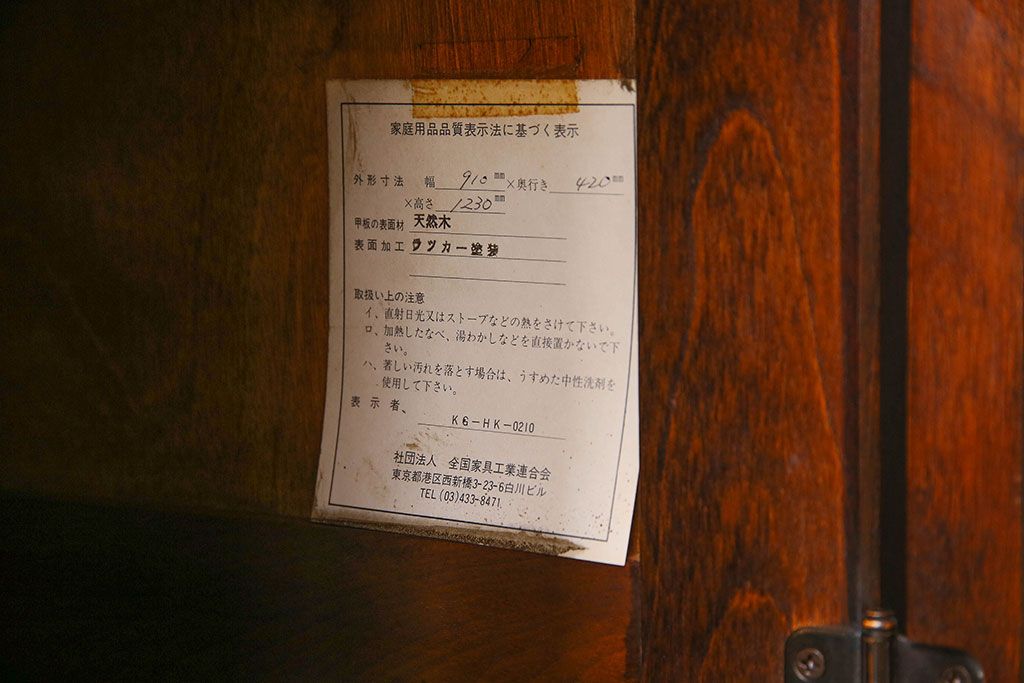 家庭用品品質表示法に基づく表示
外形寸法 幅 910㎜×奥行き 420㎜
×高さ 1230㎜
甲板の表面材 天然木
表面加工 ラツカー塗装
取扱い上の注意
イ、直射日光又はストーブなどの熱をさけて下さい。
ロ、加熱したなべ、湯わかしなどを直接置かないで下
さい。
ハ、著しい汚れを落とす場合は、うすめた中性洗剤を
使用して下さい。
表示者、
K6-HK-0210
社団法人 全国家具工業連合会
東京都港区西新橋3-23-6白川ビル
TEL (03)433-8471